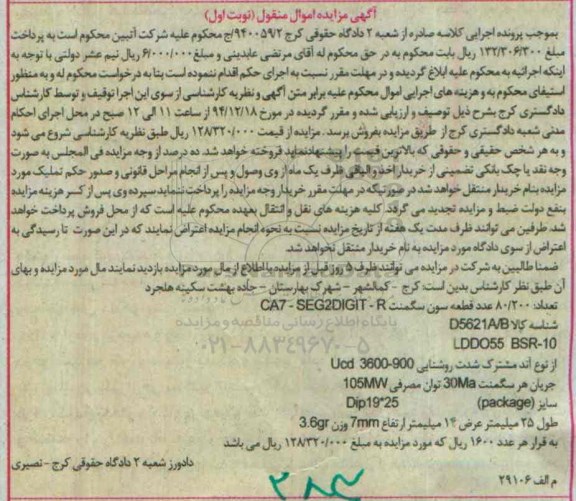 آگهی مزایده اموال منقول (نوبت اول)
بموجب پرونده اجرایی کلاسه صادره از شعبه ۲ دادگاه حقوقی کرج ۹۴۰۰۵۹/۲/ج محکوم علیه شرکت آتبین محکوم است به پرداخت
مبلغ ۱۳۲/۳۰۶/۳۰۰ ریال بابت محکوم به در حق محکوم له آقای مرتضی عابدینی و مبلغ ۶/۰۰۰/۰۰۰ ریال نیم عشر دولتی با توجه به
اینکه اجرائیه به محکوم علیه ابلاغ گردیده و در مهلت مقرر نسبت به اجرای حکم اقدام ننموده است بنا به درخواست محکوم له و به منظور
استیفای محکوم به و هزینه های اجرایی اموال محکوم علیه برابر متن آگهی و نظریه کارشناسی از سوی این اجرا توقیف و توسط کارشناس
دادگستری کرج بشرح ذیل توصیف و ارزیابی شده و مقرر گردیده در مورخ ۹۴/۱۲/۱۸ از ساعت ۱۱ الی ۱۲ صبح در محل اجرای احکام
مدنی شعبه دادگستری کرج از طریق مزایده بفروش برسد. مزایده از قیمت ۱۲۸/۳۲۰/۰۰۰ ریال طبق نظریه کارشناسی شروع می شود
و به هر شخص حقیقی و حقوقی که بالاترین قیمت را پیشنهاد نماید فروخته خواهد شد. ده درصد از وجه مزایده فی المجلس به صورت
وجه نقد یا چک بانکی تضمینی از خریدار اخذ و الباقی ظرف یک ماه از وی وصول و پس از انجام مراحل قانونی و صدور حکم تملیک مورد
مزایده بنام خریدار منتقل خواهد شد در صورتیکه در مهلت مقرر خریدار وجه مزایده را پرداخت ننماید سپرده وی پس از کسر هزینه مزایده
بنفع دولت ضبط و مزایده تجدید می گردد. کلیه هزینه های نقل و انتقال بعهده محکوم علیه است که از محل فروش پرداخت خواهد
شد. طرفین می توانند ظرف مدت یک هفته از تاریخ مزایده نسبت به نحوه انجام مزایده اعتراض نمایند که در این صورت تا رسیدگی به
اعتراض از سوی دادگاه مورد مزایده به نام خریدار منتقل نخواهد شد.
ضمنا طالبین به شرکت در مزایده می توانند ظرف ۵ روز قبل از مزایده با اطلاع از مال مورد مزایده بازدید نمایند مال مورد مزایده و بهای
آن طبق نظر کارشناسی بدین است: کرج - کمالشهر - شهرک بهارستان - جاده بهشت سکینه هلجرد
تعداد: ۸۰/۲۰۰ عدد قطعه سون سگمنت CA7 - SEG2DIGIT - R
شناسه کالا D5621A/B
LDDO55 BSR-10
از نوع آند مشترک شدت روشنایی Ucd 3600-900
جریان هر سگمنت 30Ma توان مصرفی 105MW
سایز (package) Dip19*25
طول ۲۵ میلیمتر عرض ۱۴ میلیمتر ارتفاع 7mm وزن 3.6gr
به قرار هر عدد ۱۶۰۰ ریال که مورد مزایده به مبلغ ۱۲۸/۳۲۰/۰۰۰ ریال می باشد
دادورز شعبه ۲ دادگاه حقوقی کرج - نصیری
م الف ۲۹۱۰۶
پایگاه اطلاع رسانی مناقصه و مزایده
۰۲۱-۸۸۳۴۹۶۷۰-۵